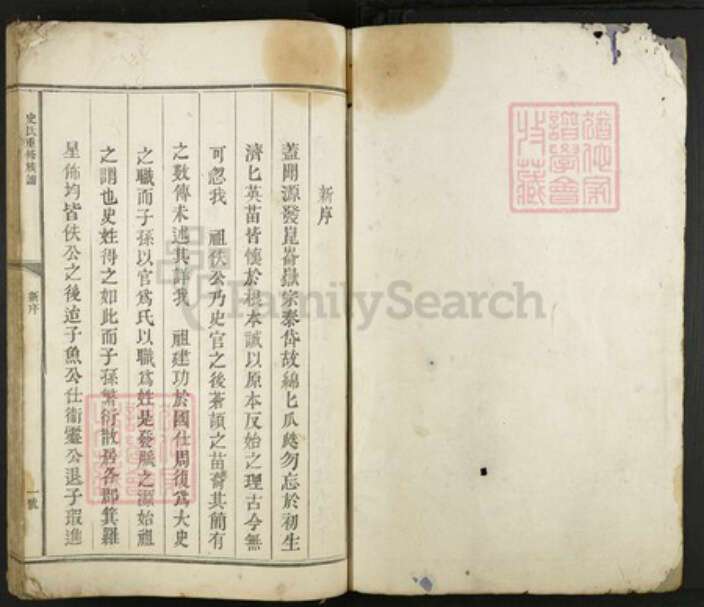 新序
蓋聞源發崑崙嶽宗泰岱故綿匕瓜瓞勿忘於初生
濟匕英苗皆懷於根本誠以原本反始之理古今無
可忽我 祖佚公乃史官之後蒼頡之苗裔其簡有
之數傳未述其詳我 祖建功於國仕周復爲大史
之職而子孫以官爲氏以職爲姓是發脈之源始祖
之謂也史姓得之如此而子孫繁衍散居各郡箕羅
星佈均皆佚公之後迨子魚公仕衞靈公退子瑕進
史氏重修族譜
新序
一號
FamilySearch